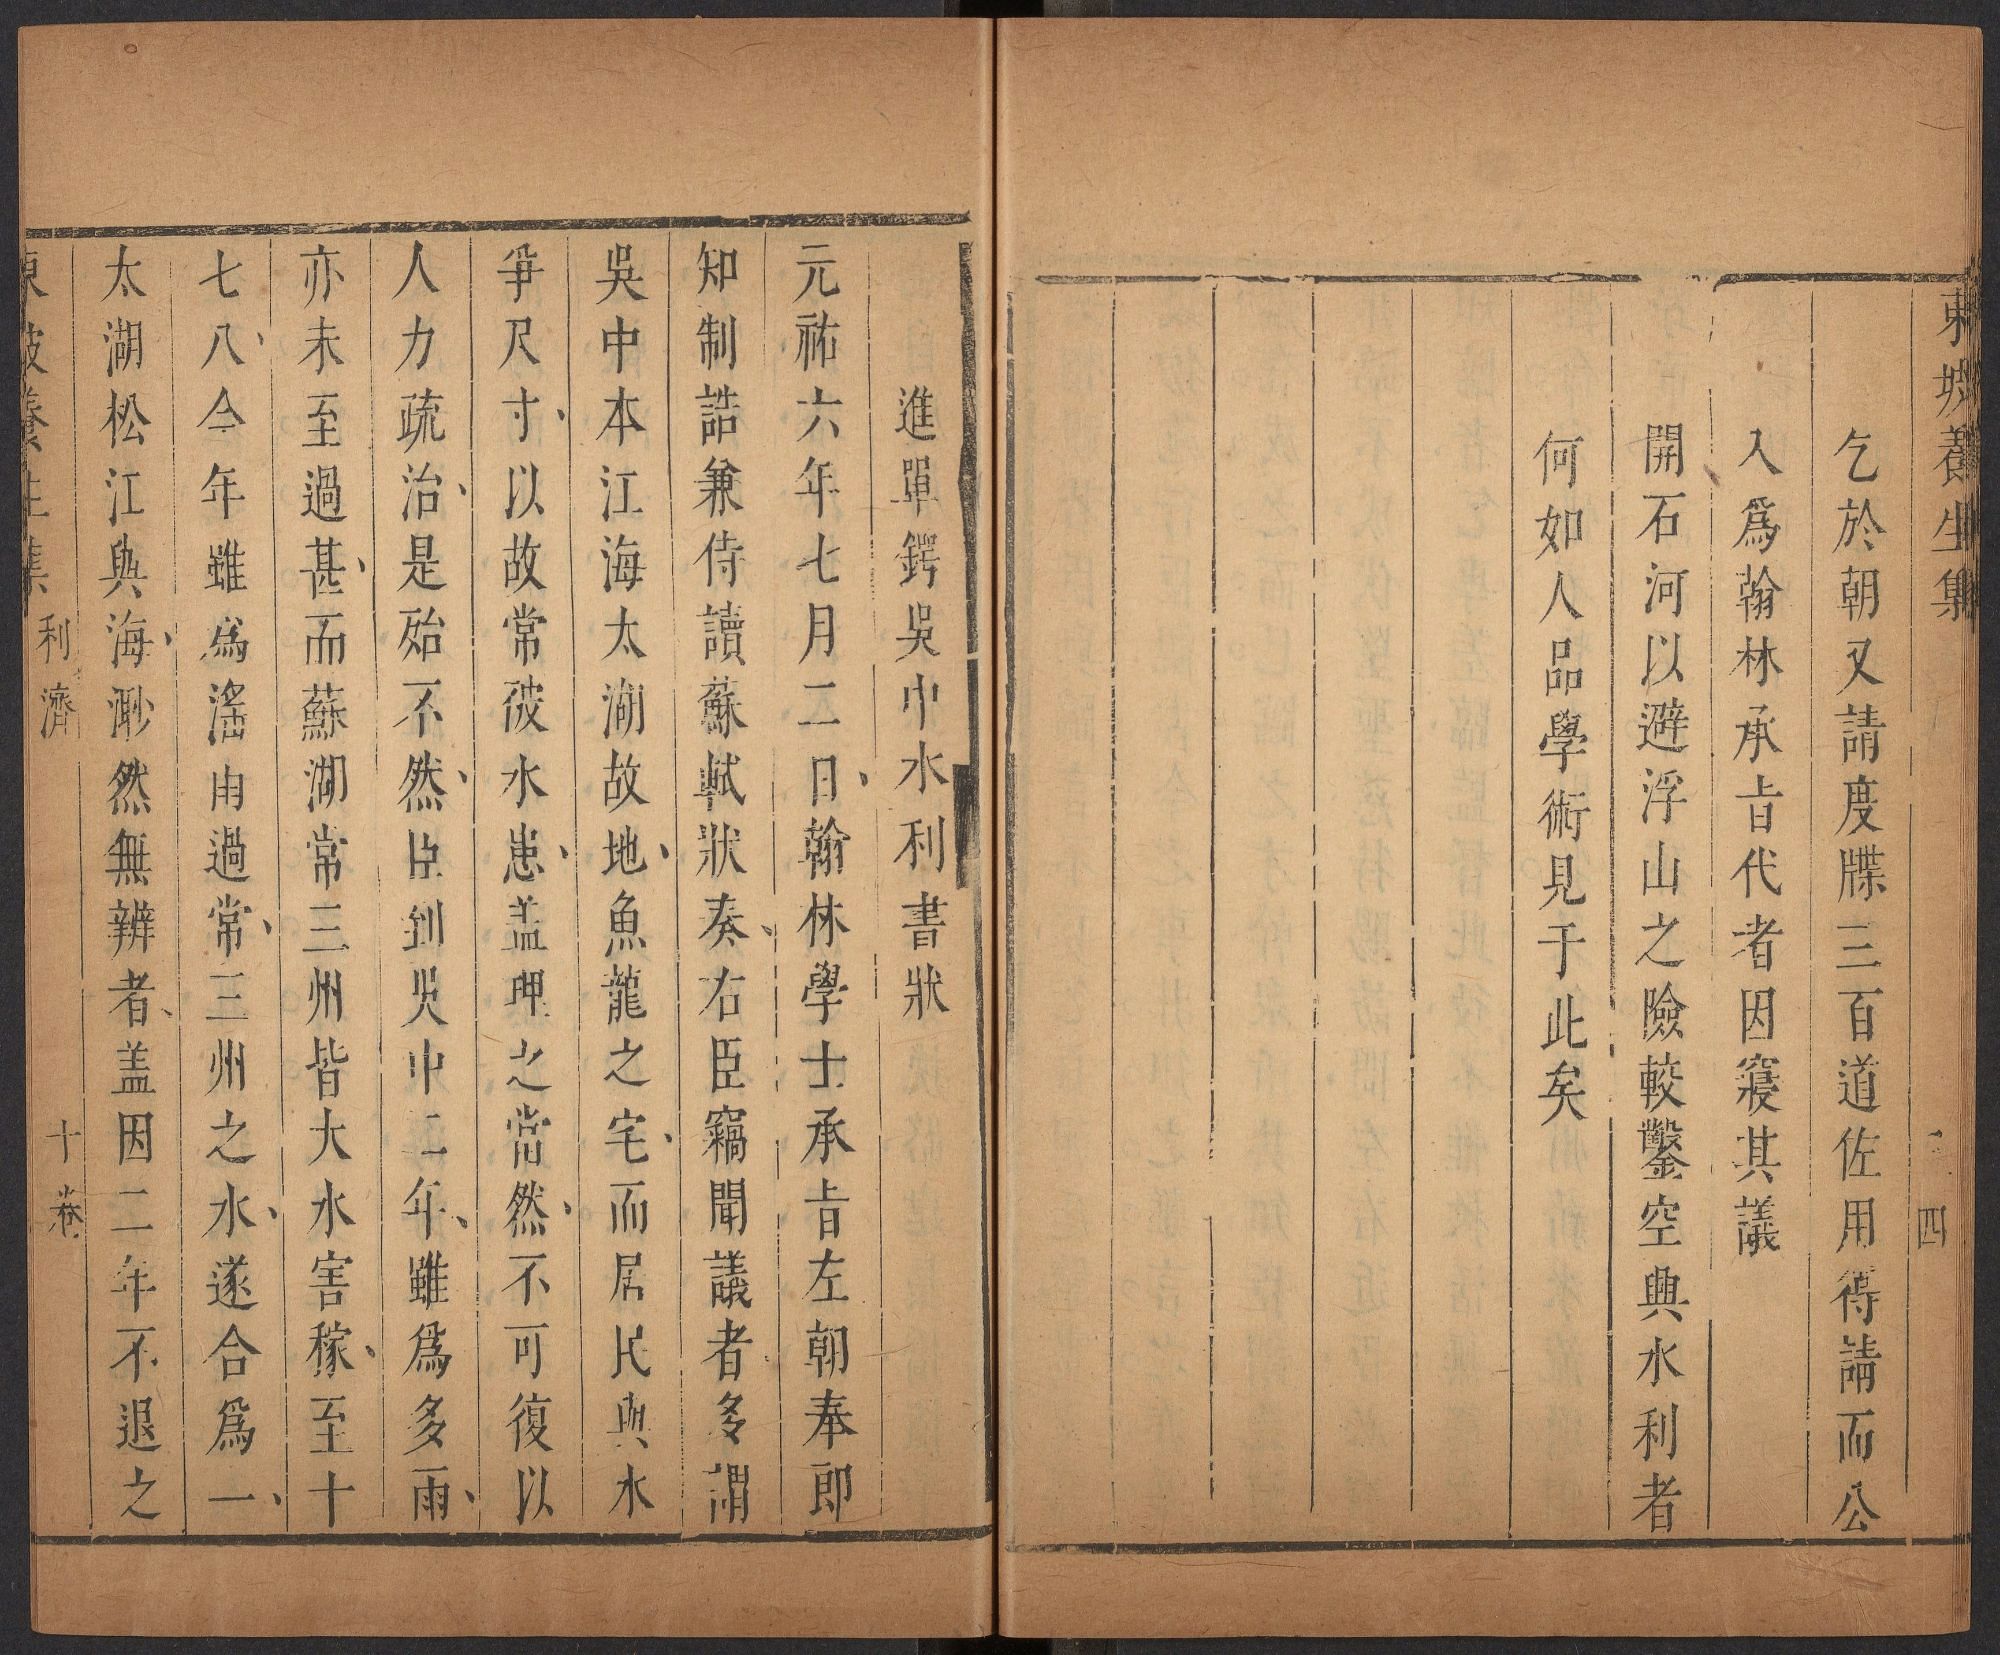 東坡養生集
四
乞於朝又請度牒三百道佐用得請而公
入爲翰林承旨代者因寢其議
開石河以避浮山之險較鑿空興水利者
何如人品學術見于此矣
進單鍔吳中水利書狀
元祐六年七月二日、翰林學士承旨左朝奉郎
知制誥兼侍讀蘇軾狀奏、右臣竊聞議者多謂
吳中本江海太湖故地、魚龍之宅、而居民與水
爭尺寸、以故常被水患、盖理之當然、不可復以
人力疏治、是殆不然、臣到吳中二年、雖爲多雨、
亦未至過甚、而蘇湖常三州皆大水害稼、至十
七八、今年雖爲淫雨過常、三州之水、遂合爲一、
太湖松江與海、渺然無辨者、盖因二年不退之
東坡養生集
利濟
十卷